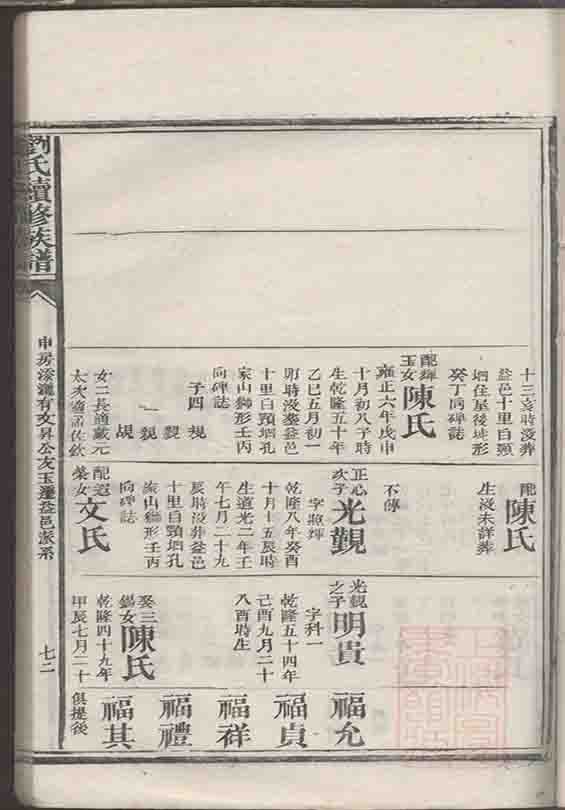 劉氏續修族譜
申房添瀧有文昇公友玉遷益邑派系
七二
十三亥時沒葬
益邑十里白頸
坳住屋後坡形
癸丁向碑誌
配輝
玉女
陳氏
雍正六年戊申
十月初八子時
生乾隆五十年
乙巳五月初一
卯時沒葬益邑
十里白頸坳孔
家山獅形壬丙
向碑誌
子四 規
覲
一 親
覘
女二長適戴元
太次適
佐欽
配
陳氏
生沒未詳葬
不傳
正心
次子
光觀
字昭輝
乾隆八年癸酉
十月十五辰時
生道光二年壬
午七月二十九
辰時沒葬益邑
十里白頸坳孔
家山獅形壬丙
向碑誌
配
榮女
文氏
光觀
之子
明貴
字科一
乾隆五十四年
己酉九月二十
八酉時生
娶三
錫女
陳氏
乾隆四十九年
甲辰七月二十
福允
福貞
福祥
福禮
福其
俱提後